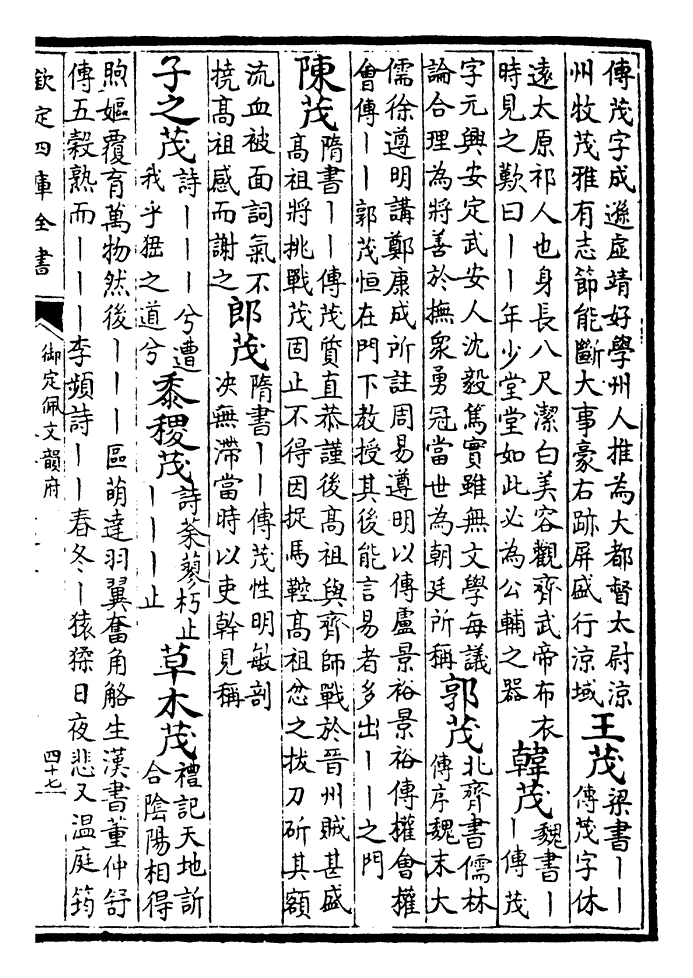 傳茂字成遜虛靖好學州人推為大都督太尉涼
州牧茂雅有志節能斷大事豪右跡屏盛行涼域
王茂
梁書丨丨
傳茂字休
遠太原祁人也身長八尺潔白美容觀齊武帝布衣
時見之歎曰丨丨年少堂堂如此必為公輔之器
韓茂
魏書丨
丨傳茂
字元興安定武安人沈毅篤實雖無文學每議
論合理為將善於撫衆勇冠當世為朝廷所稱
郭茂
北齊書儒林
傳序魏末大
儒徐遵明講鄭康成所註周易遵明以傳盧景裕景裕傳權會權
會傳丨丨郭茂恒在門下教授其後能言易者多出丨丨之門
陳茂
隋書丨丨傳茂質直恭謹後髙祖與齊師戰於晉州賊甚盛
髙祖將挑戰茂固止不得因捉馬鞚髙祖忿之拔刀斫其額
流血被面詞氣不
撓髙祖感而謝之
郎茂
隋書丨丨傳茂性明敏剖
决無滯當時以吏幹見稱
子之茂
詩丨丨丨兮遭
我乎峱之道兮
黍稷茂
詩荼蓼朽止
丨丨丨止
草木茂
禮記天地訢
合陰陽相得
煦嫗覆育萬物然後丨丨丨區萌達羽翼奮角觡生漢書董仲舒
傳五穀熟而丨丨丨李頻詩丨丨春冬丨猿猱日夜悲又温庭筠
欽定四庫全書
御定佩文韻府
四十七